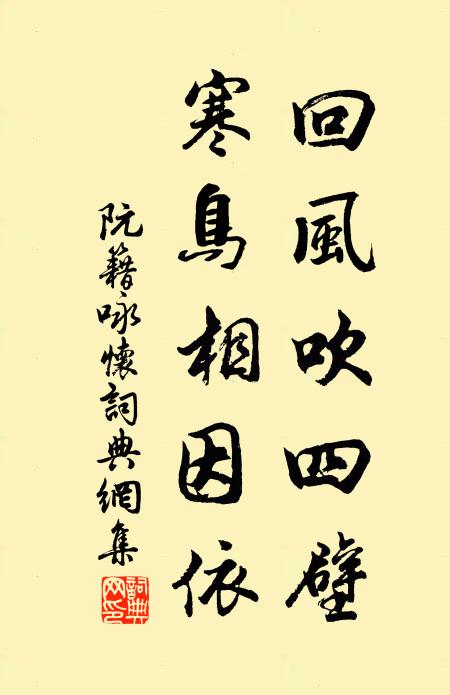 回風吹四壁
寒鳥相因依
阮籍咏懷詞典網集
詞典網印